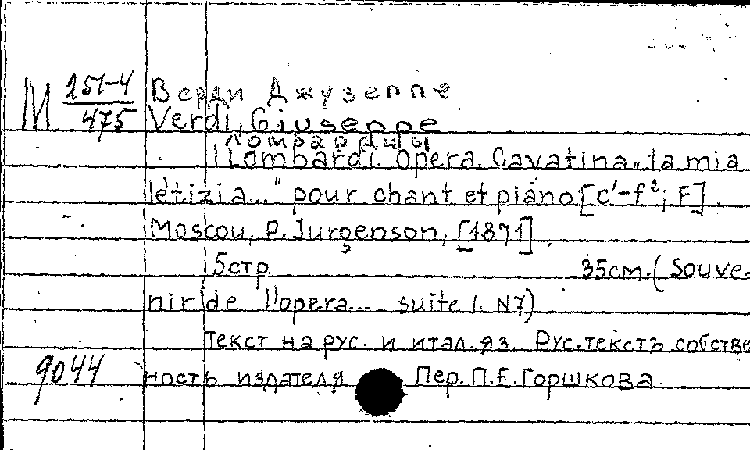 М 251-4/475
Верди Джузеппе
Verdi, Giuseppe
Ломбардцы
I Lombardi. Opera. Cavatina „la mia
letizia..." pour chant et piano [c¹-f²; F].
Moscou, P. Jurgenson, [1871].
5стр 35см. (Souve-
nir de l'opera... suite I. N7)
Текст на рус. и итал. яз. Рус. текстъ собстве-
9044 ность издателя Пер. П.Е. Горшкова